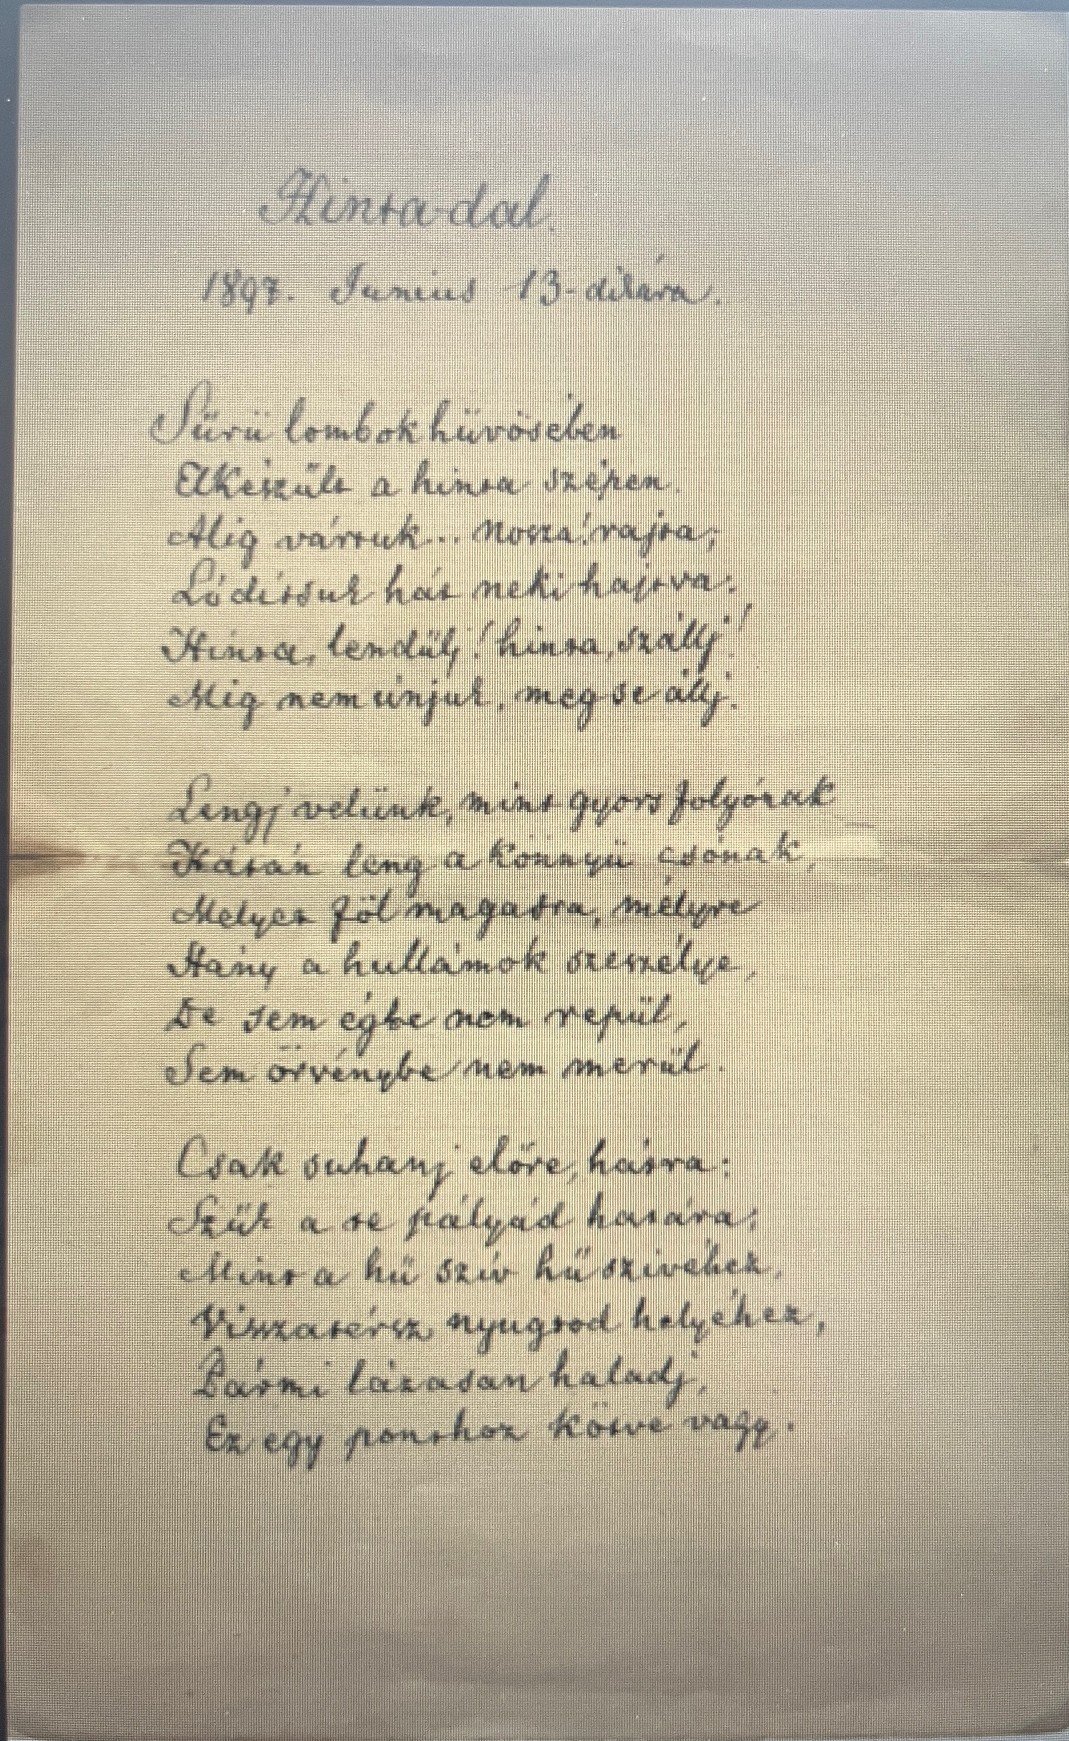 Hinta-dal.
1897. Junius 13-dikára.
Sürü lombok hüvösében
Elkészült a hinta szépen.
Alig vártuk... Nosza! rajta;
Lódítsuk hát neki hajtva:
Hinta, lendülj! hinta, szállj!
Mig nem únjuk, meg se állj.
Lengj velünk, mint gyors folyónak
Hátán leng a könnyü csónak,
Melyet föl magasra, mélyre
Hány a hullámok szeszélye,
De sem égbe nem repül,
Sem örvénybe nem merül.
Csak suhanj előre, hátra:
Szük a te pályád határa;
Mint a hű szív hű szivéhez,
Visszatérsz nyugtod helyéhez,
Bármi lázasan haladj,
Ez egy ponthoz kötve vagy.